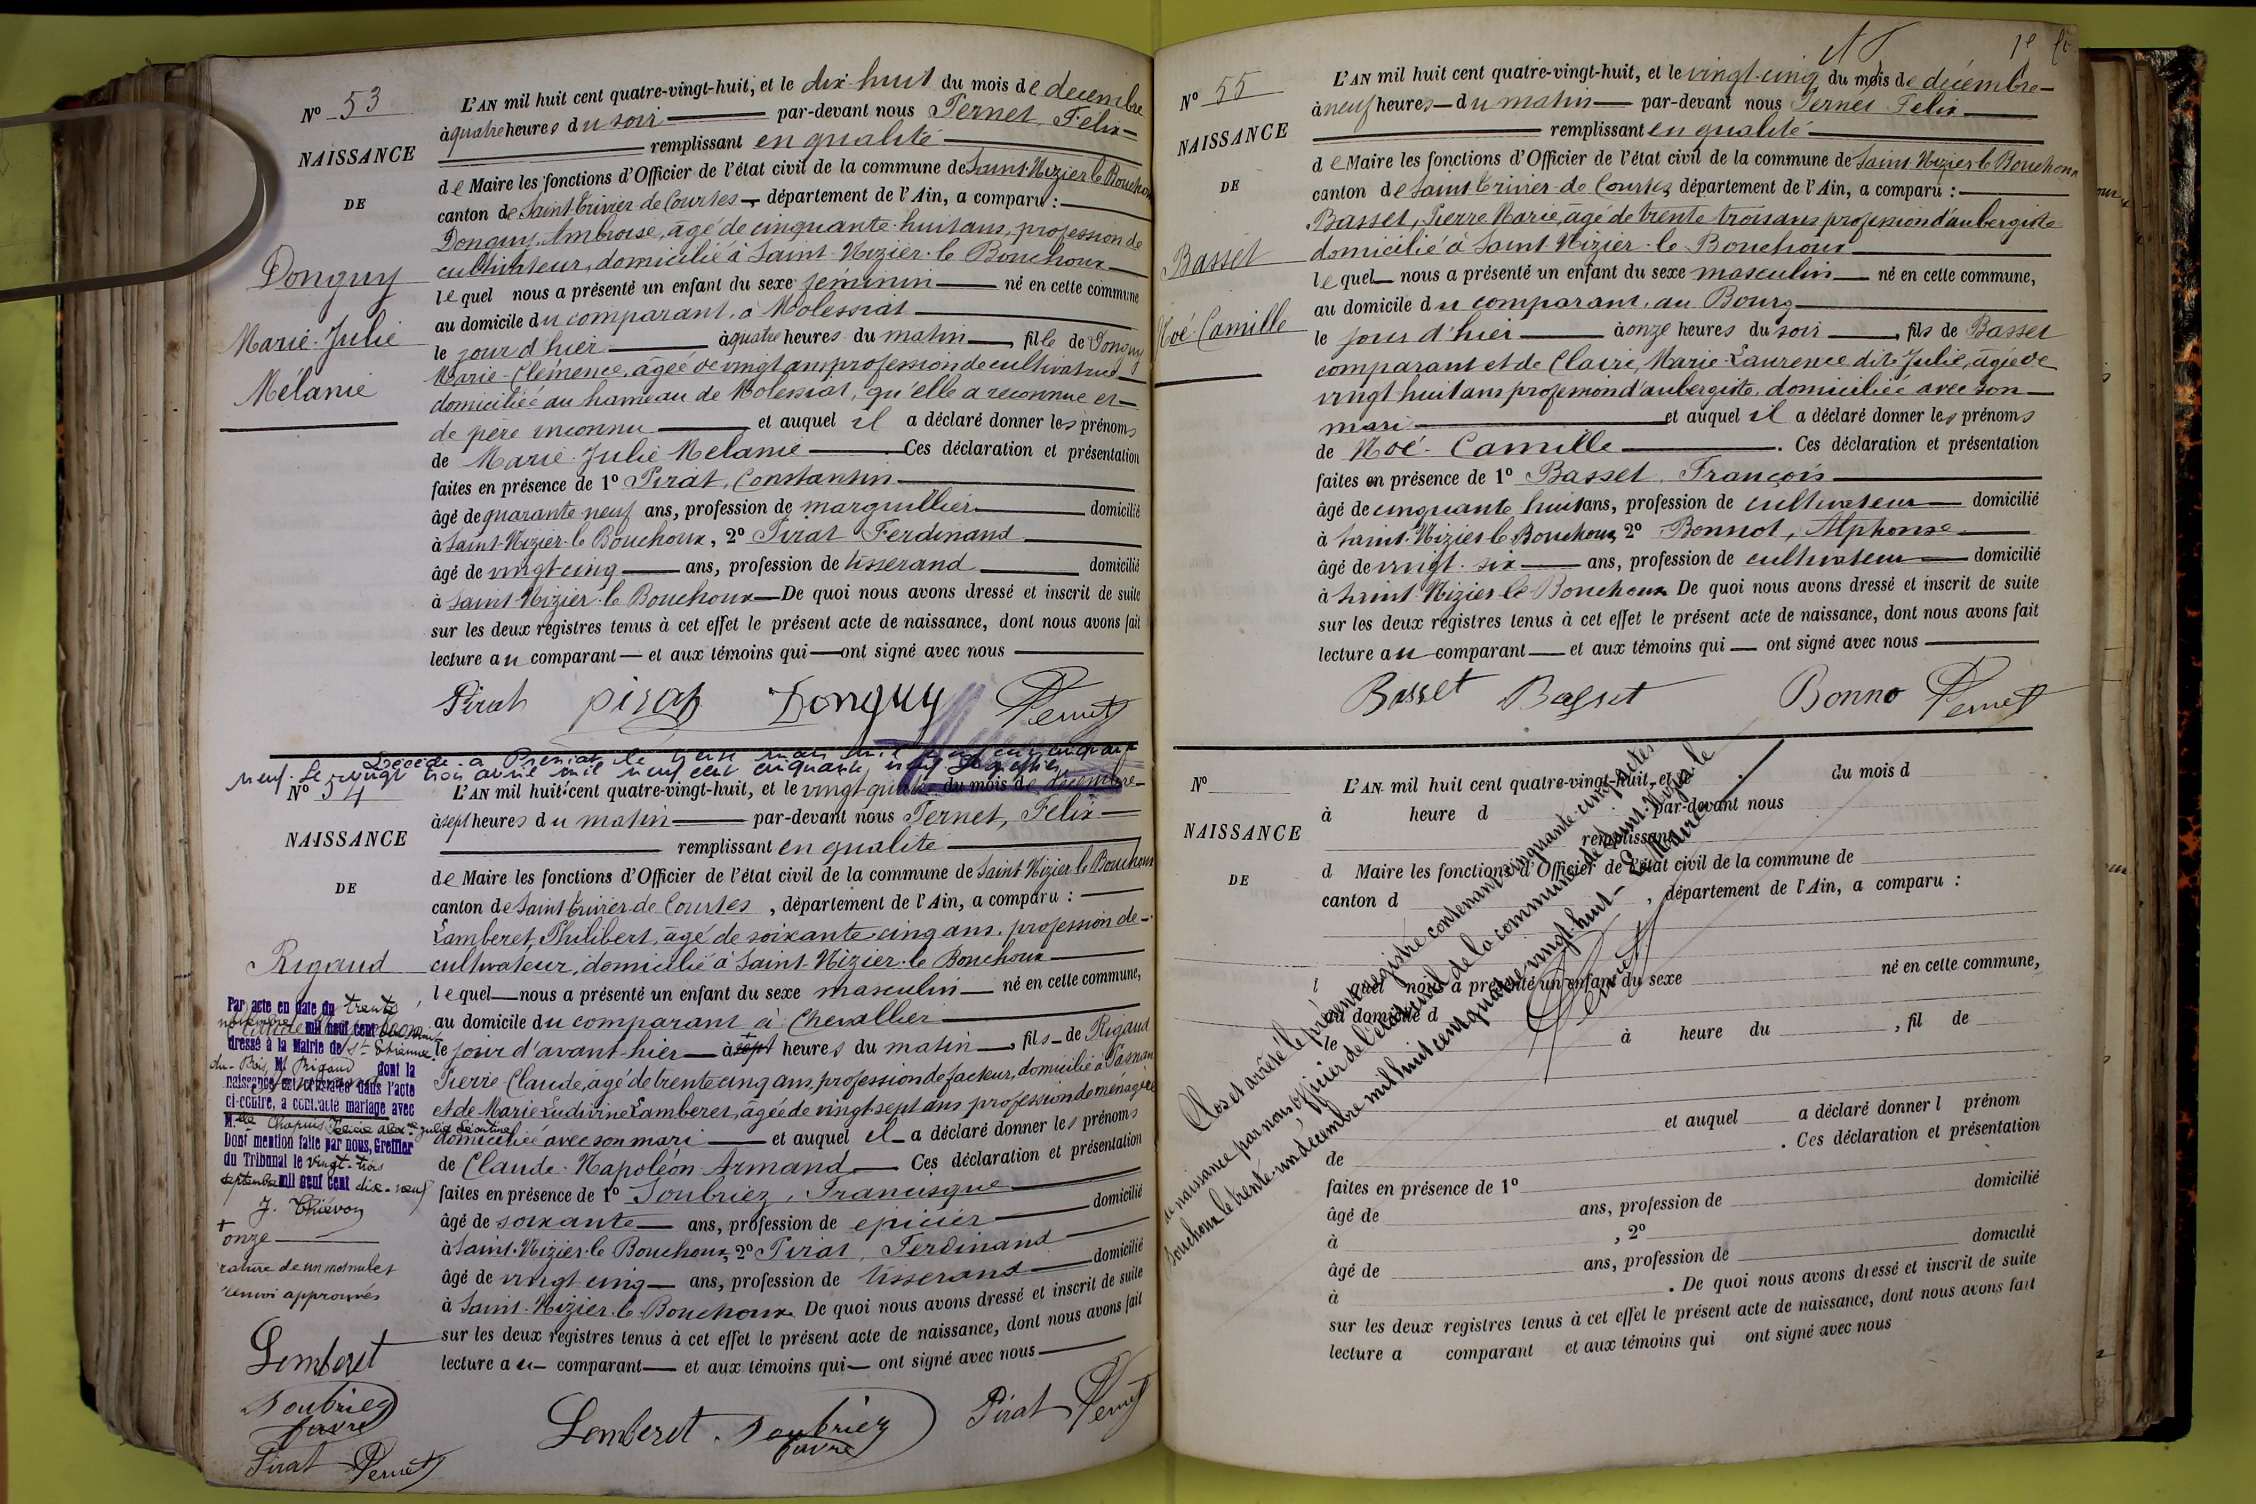 N° 53
NAISSANCE
DE
Donguy
Marie-Julie
Mélanie
L'AN mil huit cent quatre-vingt-huit, et le dix-huit du mois de décembre
à quatre heures du soir par-devant nous Pernet, Félix
remplissant en qualité
de Maire les fonctions d'Officier de l'état civil de la commune de Saint-Nizier-le-Bouchoux
canton de Saint-Trivier-de-Courtes, département de l'Ain, a comparu :
Donguy, Ambroise, âgé de cinquante-huit ans, profession de
cultivateur, domicilié à Saint-Nizier-le-Bouchoux
lequel nous a présenté un enfant du sexe féminin né en cette commune
au domicile du comparant, à Molessiat
le jour d'hier à quatre heures du matin, fille de Donguy
Marie-Clémence, âgée de vingt ans profession de cultivatrice
domiciliée au hameau de Molessiat, qu'elle a reconnue et
de père inconnu et auquel il a déclaré donner les prénoms
de Marie-Julie Mélanie Ces déclaration et présentation
faites en présence de 1° Pirat, Constantin
âgé de quarante-neuf ans, profession de marguillier domicilié
à Saint-Nizier-le-Bouchoux, 2° Pirat Ferdinand
âgé de vingt-cinq ans, profession de tisserand domicilié
à Saint-Nizier-le-Bouchoux De quoi nous avons dressé et inscrit de suite
sur les deux registres tenus à cet effet le présent acte de naissance, dont nous avons fait
lecture au comparant et aux témoins qui ont signé avec nous
Pirat pirat Donguy Pernet
Décédée à le treize mars mil neuf cent cinquante
neuf. Le vingt trois avril mil neuf cent cinquante neuf
N° 54
NAISSANCE
DE
Rigaud
Par acte en date du trente
novembre mil neuf cent
dressé à la Mairie de St Etienne
du-Bois M. Rigaud dont la
naissance est constatée dans l'acte
ci-contre, a contracté mariage avec
M.elle Chapuis
Dont mention faite par nous, Greffier
du Tribunal le vingt-trois
septembre mil neuf cent dix-neuf
J. Thiévon
+
onze
rature de un mot nul et
renvoi approuvés
Lemberet
Soubriez
favre
Pirat Pernet
L'AN mil huit cent quatre-vingt-huit, et le vingt-quatre du mois de décembre
à sept heures du matin par-devant nous Pernet, Félix
remplissant en qualité
de Maire les fonctions d'Officier de l'état civil de la commune de Saint-Nizier-le-Bouchoux
canton de Saint-Trivier-de-Courtes, département de l'Ain, a comparu :
Lamberet, Philibert, âgé de soixante-cinq ans, profession de
cultivateur, domicilié à Saint-Nizier-le-Bouchoux
lequel nous a présenté un enfant du sexe masculin né en cette commune,
au domicile du comparant à Chevallier
le jour d'avant-hier à sept heures du matin, fils de Rigaud
Pierre Claude, âgé de trente cinq ans, profession de facteur, domicilié à
et de Marie Ludivine Lamberet, âgée de vingt-sept ans profession de ménagère
domiciliée avec son mari et auquel il a déclaré donner les prénoms
de Claude-Napoléon-Armand Ces déclaration et présentation
faites en présence de 1° Soubriez, Francisque
âgé de soixante ans, profession de épicier domicilié
à Saint-Nizier-le-Bouchoux, 2° Pirat, Ferdinand
âgé de vingt-cinq ans, profession de tisserand domicilié
à Saint-Nizier-le-Bouchoux De quoi nous avons dressé et inscrit de suite
sur les deux registres tenus à cet effet le présent acte de naissance, dont nous avons fait
lecture au comparant et aux témoins qui ont signé avec nous
Lemberet Soubriez Pirat Pernet
favre
N° 55
NAISSANCE
DE
Basset
Noé-Camille
L'AN mil huit cent quatre-vingt-huit, et le vingt-cinq du mois de décembre
à neuf heures du matin par-devant nous Pernet Félix
remplissant en qualité
de Maire les fonctions d'Officier de l'état civil de la commune de Saint-Nizier-le-Bouchoux
canton de Saint-Trivier-de-Courtes, département de l'Ain, a comparu :
Basset, Pierre Marie, âgé de trente-trois ans profession d'aubergiste
domicilié à Saint-Nizier-le-Bouchoux
lequel nous a présenté un enfant du sexe masculin né en cette commune,
au domicile du comparant, au Bourg
le jour d'hier à onze heures du soir, fils de Basset
comparant et de Claire, Marie-Laurence dite Julie, âgée de
vingt huit ans profession d'aubergiste, domiciliée avec son
mari et auquel il a déclaré donner les prénoms
de Noé-Camille. Ces déclaration et présentation
faites en présence de 1° Basset, François
âgé de cinquante huit ans, profession de cultivateur domicilié
à Saint-Nizier-le-Bouchoux 2° Bonnot, Alphonse
âgé de vingt-six ans, profession de cultivateur domicilié
à Saint-Nizier-le-Bouchoux De quoi nous avons dressé et inscrit de suite
sur les deux registres tenus à cet effet le présent acte de naissance, dont nous avons fait
lecture au comparant et aux témoins qui ont signé avec nous
Basset Basset Bonno Pernet
N°
NAISSANCE
DE
L'AN mil huit cent quatre-vingt-huit, et le du mois d
à heure d par-devant nous
remplissant
d Maire les fonctions d'Officier de l'état civil de la commune de
canton d , département de l'Ain, a comparu :
l quel nous a présenté un enfant du sexe né en cette commune,
au domicile d
le à heure du , fil de
et auquel a déclaré donner l prénom
de . Ces déclaration et présentation
faites en présence de 1°
âgé de ans, profession de domicilié
à , 2°
âgé de ans, profession de domicilié
à . De quoi nous avons dressé et inscrit de suite
sur les deux registres tenus à cet effet le présent acte de naissance, dont nous avons fait
lecture a comparant et aux témoins qui ont signé avec nous
Clos et arrêté le présent registre contenant cinquante-cinq actes
de naissance par nous, officier de l'état civil de la commune de Saint-Nizier-le
Bouchoux le trente-un décembre mil huit cent quatre-vingt-huit - Le Maire
Pernet